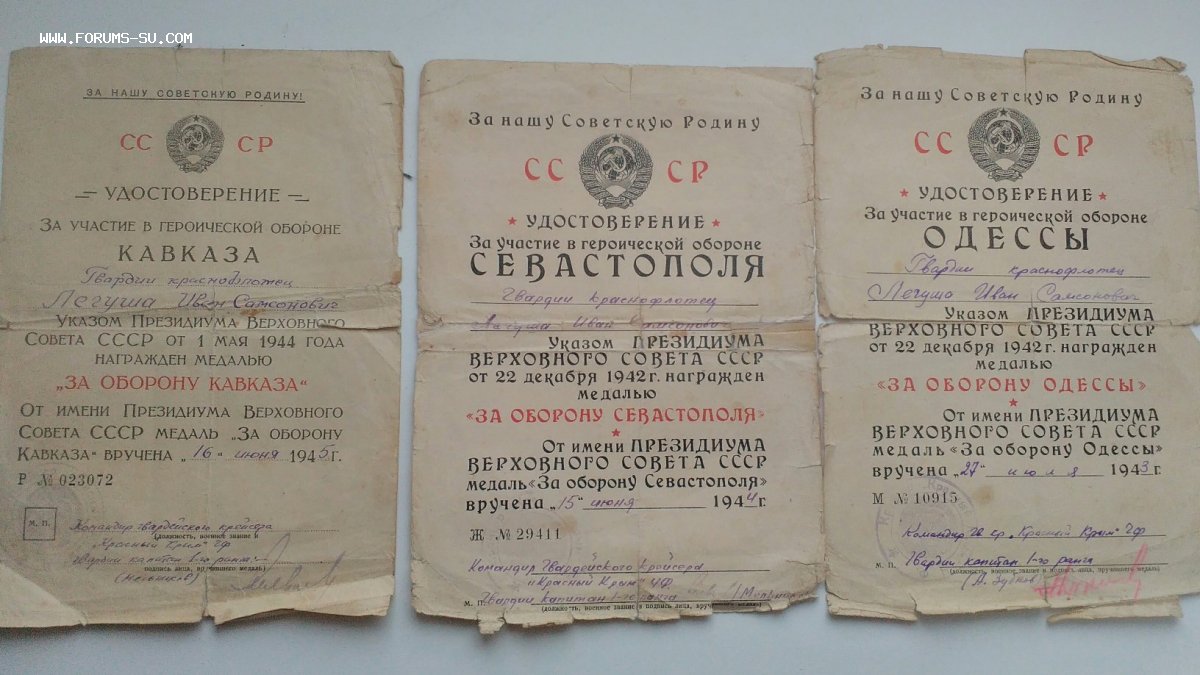 WWW.FORUMS-SU.COM
ЗА НАШУ СОВЕТСКУЮ РОДИНУ!
СС СР
УДОСТОВЕРЕНИЕ
ЗА УЧАСТИЕ В ГЕРОИЧЕСКОЙ ОБОРОНЕ
КАВКАЗА
Гвардии краснофлотец
Легуша Иван Самсонович
УКАЗОМ ПРЕЗИДИУМА ВЕРХОВНОГО
СОВЕТА СССР ОТ 1 МАЯ 1944 ГОДА
НАГРАЖДЕН МЕДАЛЬЮ
„ЗА ОБОРОНУ КАВКАЗА“
ОТ ИМЕНИ ПРЕЗИДИУМА ВЕРХОВНОГО
СОВЕТА СССР МЕДАЛЬ „ЗА ОБОРОНУ
КАВКАЗА“ ВРУЧЕНА „16“ июня 1945 г.
Р № 023072
М. П.
Командир гвардейского крейсера
(должность, военное звание и
„Красный Крым“ ЧФ
гвардии капитан 1-го ранга
подпись лица, вручившего медаль)
(Мельников)
За нашу Советскую Родину
СС СР
УДОСТОВЕРЕНИЕ
За участие в героической обороне
СЕВАСТОПОЛЯ
Гвардии краснофлотец
Легуша Иван Самсонович
Указом ПРЕЗИДИУМА
ВЕРХОВНОГО СОВЕТА СССР
от 22 декабря 1942 г. награжден
медалью
«ЗА ОБОРОНУ СЕВАСТОПОЛЯ»
От имени ПРЕЗИДИУМА
ВЕРХОВНОГО СОВЕТА СССР
медаль «За оборону Севастополя»
вручена „15“ июня 1944 г.
Ж № 29411
Командир Гвардейского Крейсера
„Красный Крым“ ЧФ
М. П. Гвардии капитан 1-го ранга
(должность, военное звание и подпись лица, вручившего медаль)
За нашу Советскую Родину
СС СР
УДОСТОВЕРЕНИЕ
За участие в героической обороне
ОДЕССЫ
Гвардии краснофлотец
Легуша Иван Самсонович
Указом ПРЕЗИДИУМА
ВЕРХОВНОГО СОВЕТА СССР
от 22 декабря 1942 г. награжден
медалью
«ЗА ОБОРОНУ ОДЕССЫ»
От имени ПРЕЗИДИУМА
ВЕРХОВНОГО СОВЕТА СССР
медаль «За оборону Одессы»
вручена „27“ июля 1943 г.
М № 10915
Командир „Красный Крым“ ЧФ
М. П. Гвардии капитан 1-го ранга
(должность, военное звание и подпись лица, вручившего медаль)
(А. Зубков)